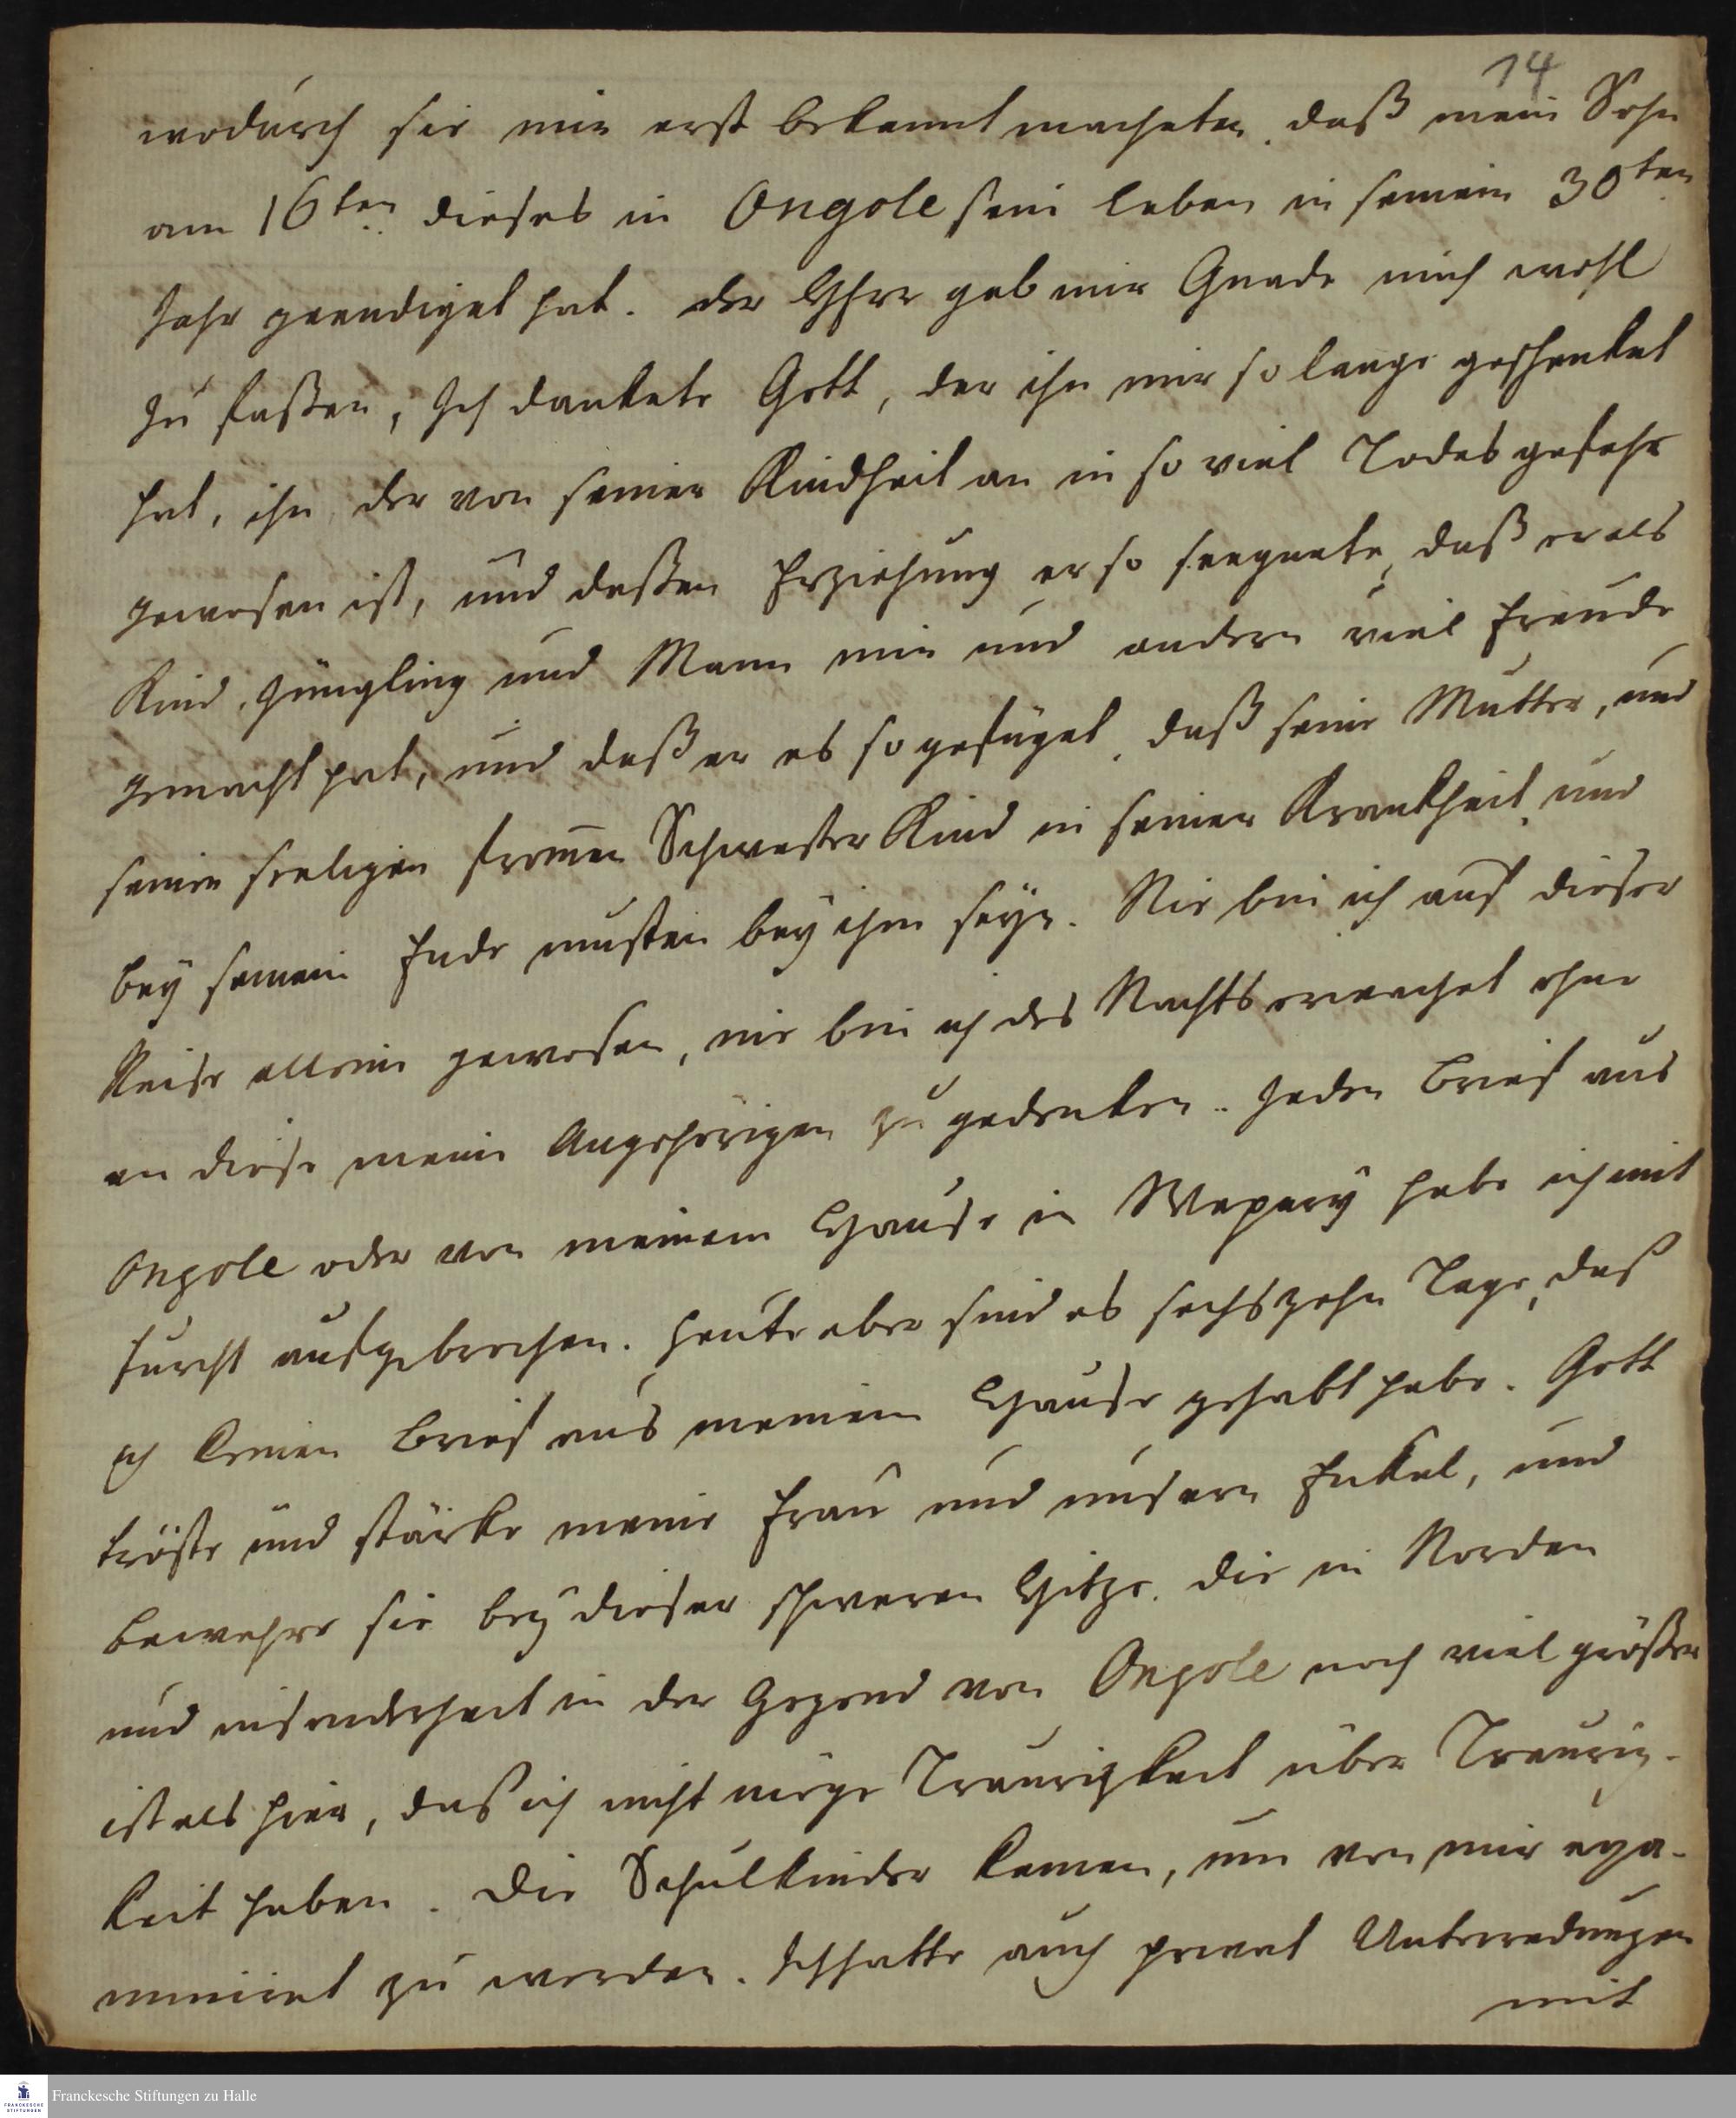 14
wodurch sie mir erst bekannt macheten, daß mein Sohn
am 16ten dieses in Ongole sein leben in seinem 30ten
Jahr geendiget hat. der Herr gab mir Gnade mich wohl
zu faßen, Ich dankete Gott, der ihn mir so lange geschenket
hat, ihn der von seiner Kindheit an in so viel Todesgefahr
gewesen ist, und deßen Erziehung er so seegnete, daß er als
Kind, Jüngling und Mann mir und andern viel Freude
gemacht hat, und daß er es so gefüget, daß seine Mutter, und
seiner seeligen from̄en Schwester Kind in seiner Krankheit und
bey seinem Ende musten bey ihm seyn. Nie bin ich auf dieser
Reise allein gewesen, nie bin ich des Nachts erwachet ohne
an diese meine Angehörigen zu gedenken. Jeden Brief aus
Ongole oder von meinem Hause in Wepery habe ich mit
furcht aufgebrochen. heute aber sind es sechszehn Tage, daß
ich keinen Brief aus meinem Hause gehabt habe. Gott
tröste und stärke meine Frau und unsern Enkel, und
bewahre sie bey dieser schweren Hitze, die in Norden
und insonderheit in der Gegend von Ongole noch viel größer
ist als hier, daß ich nicht möge Traurigkeit über Traurig-
keit haben. Die Schulkinder kamen, um von mir exa-
miniret zu werden. Ich hatte auch privat Unterredungen
mit
Franckesche Stiftungen zu Halle
FRANCKESCHE
STIFTUNGEN